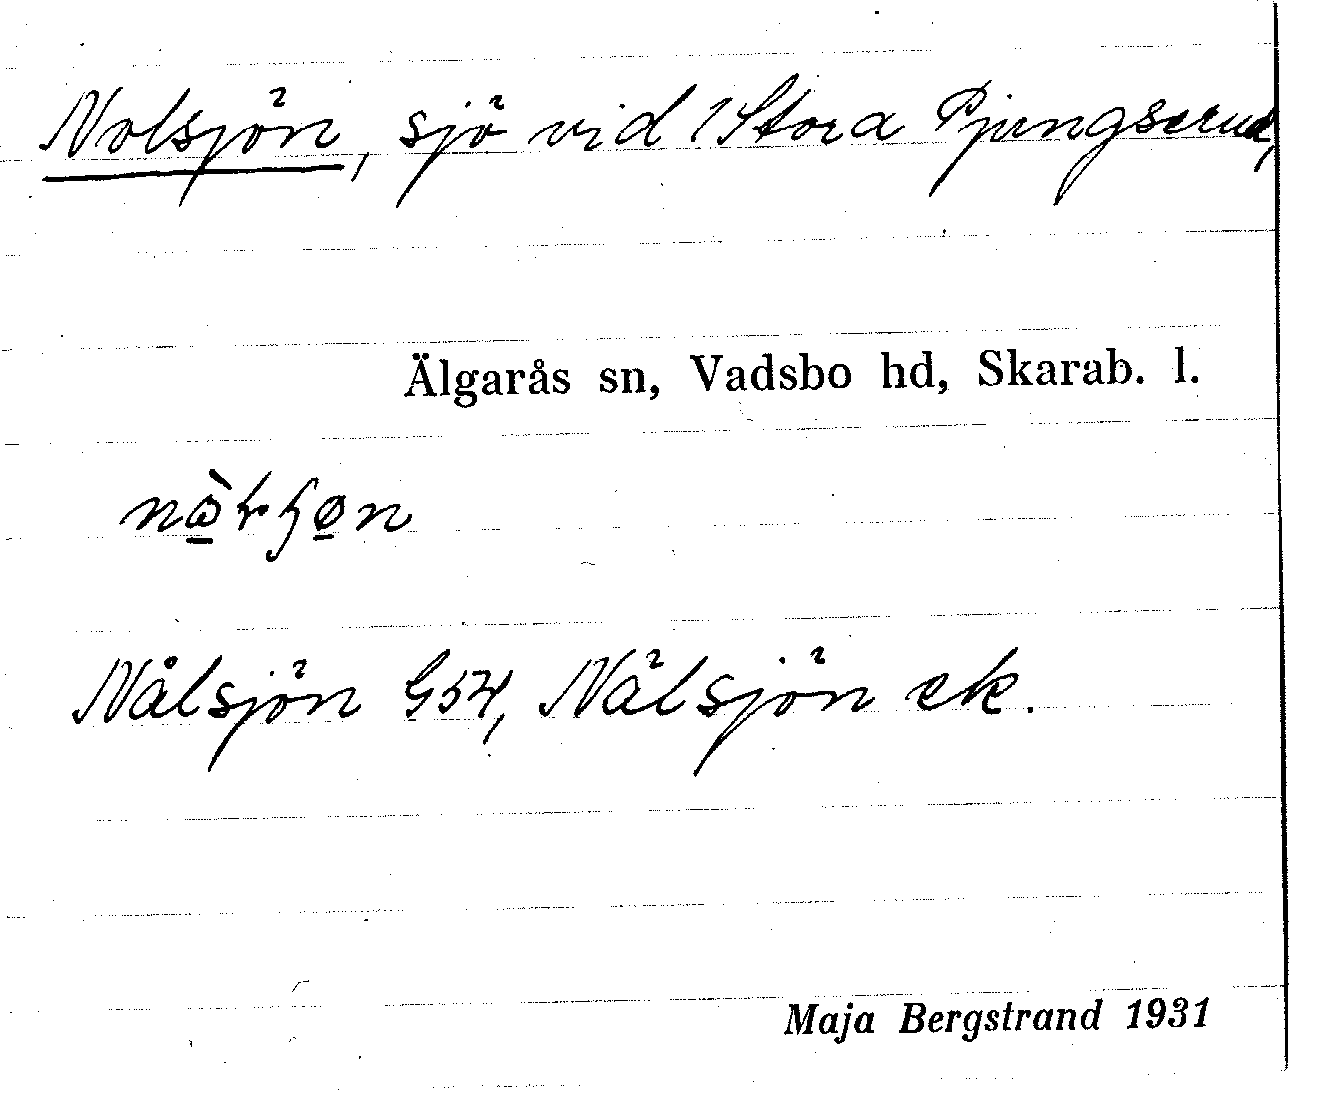 Nolsjön, sjö vid Stora Pjungserud,
Älgarås sn, Vadsbo hd, Skarab. l.
Nålsjön G54, Nälsjön ek.
Maja Bergstrand 1931